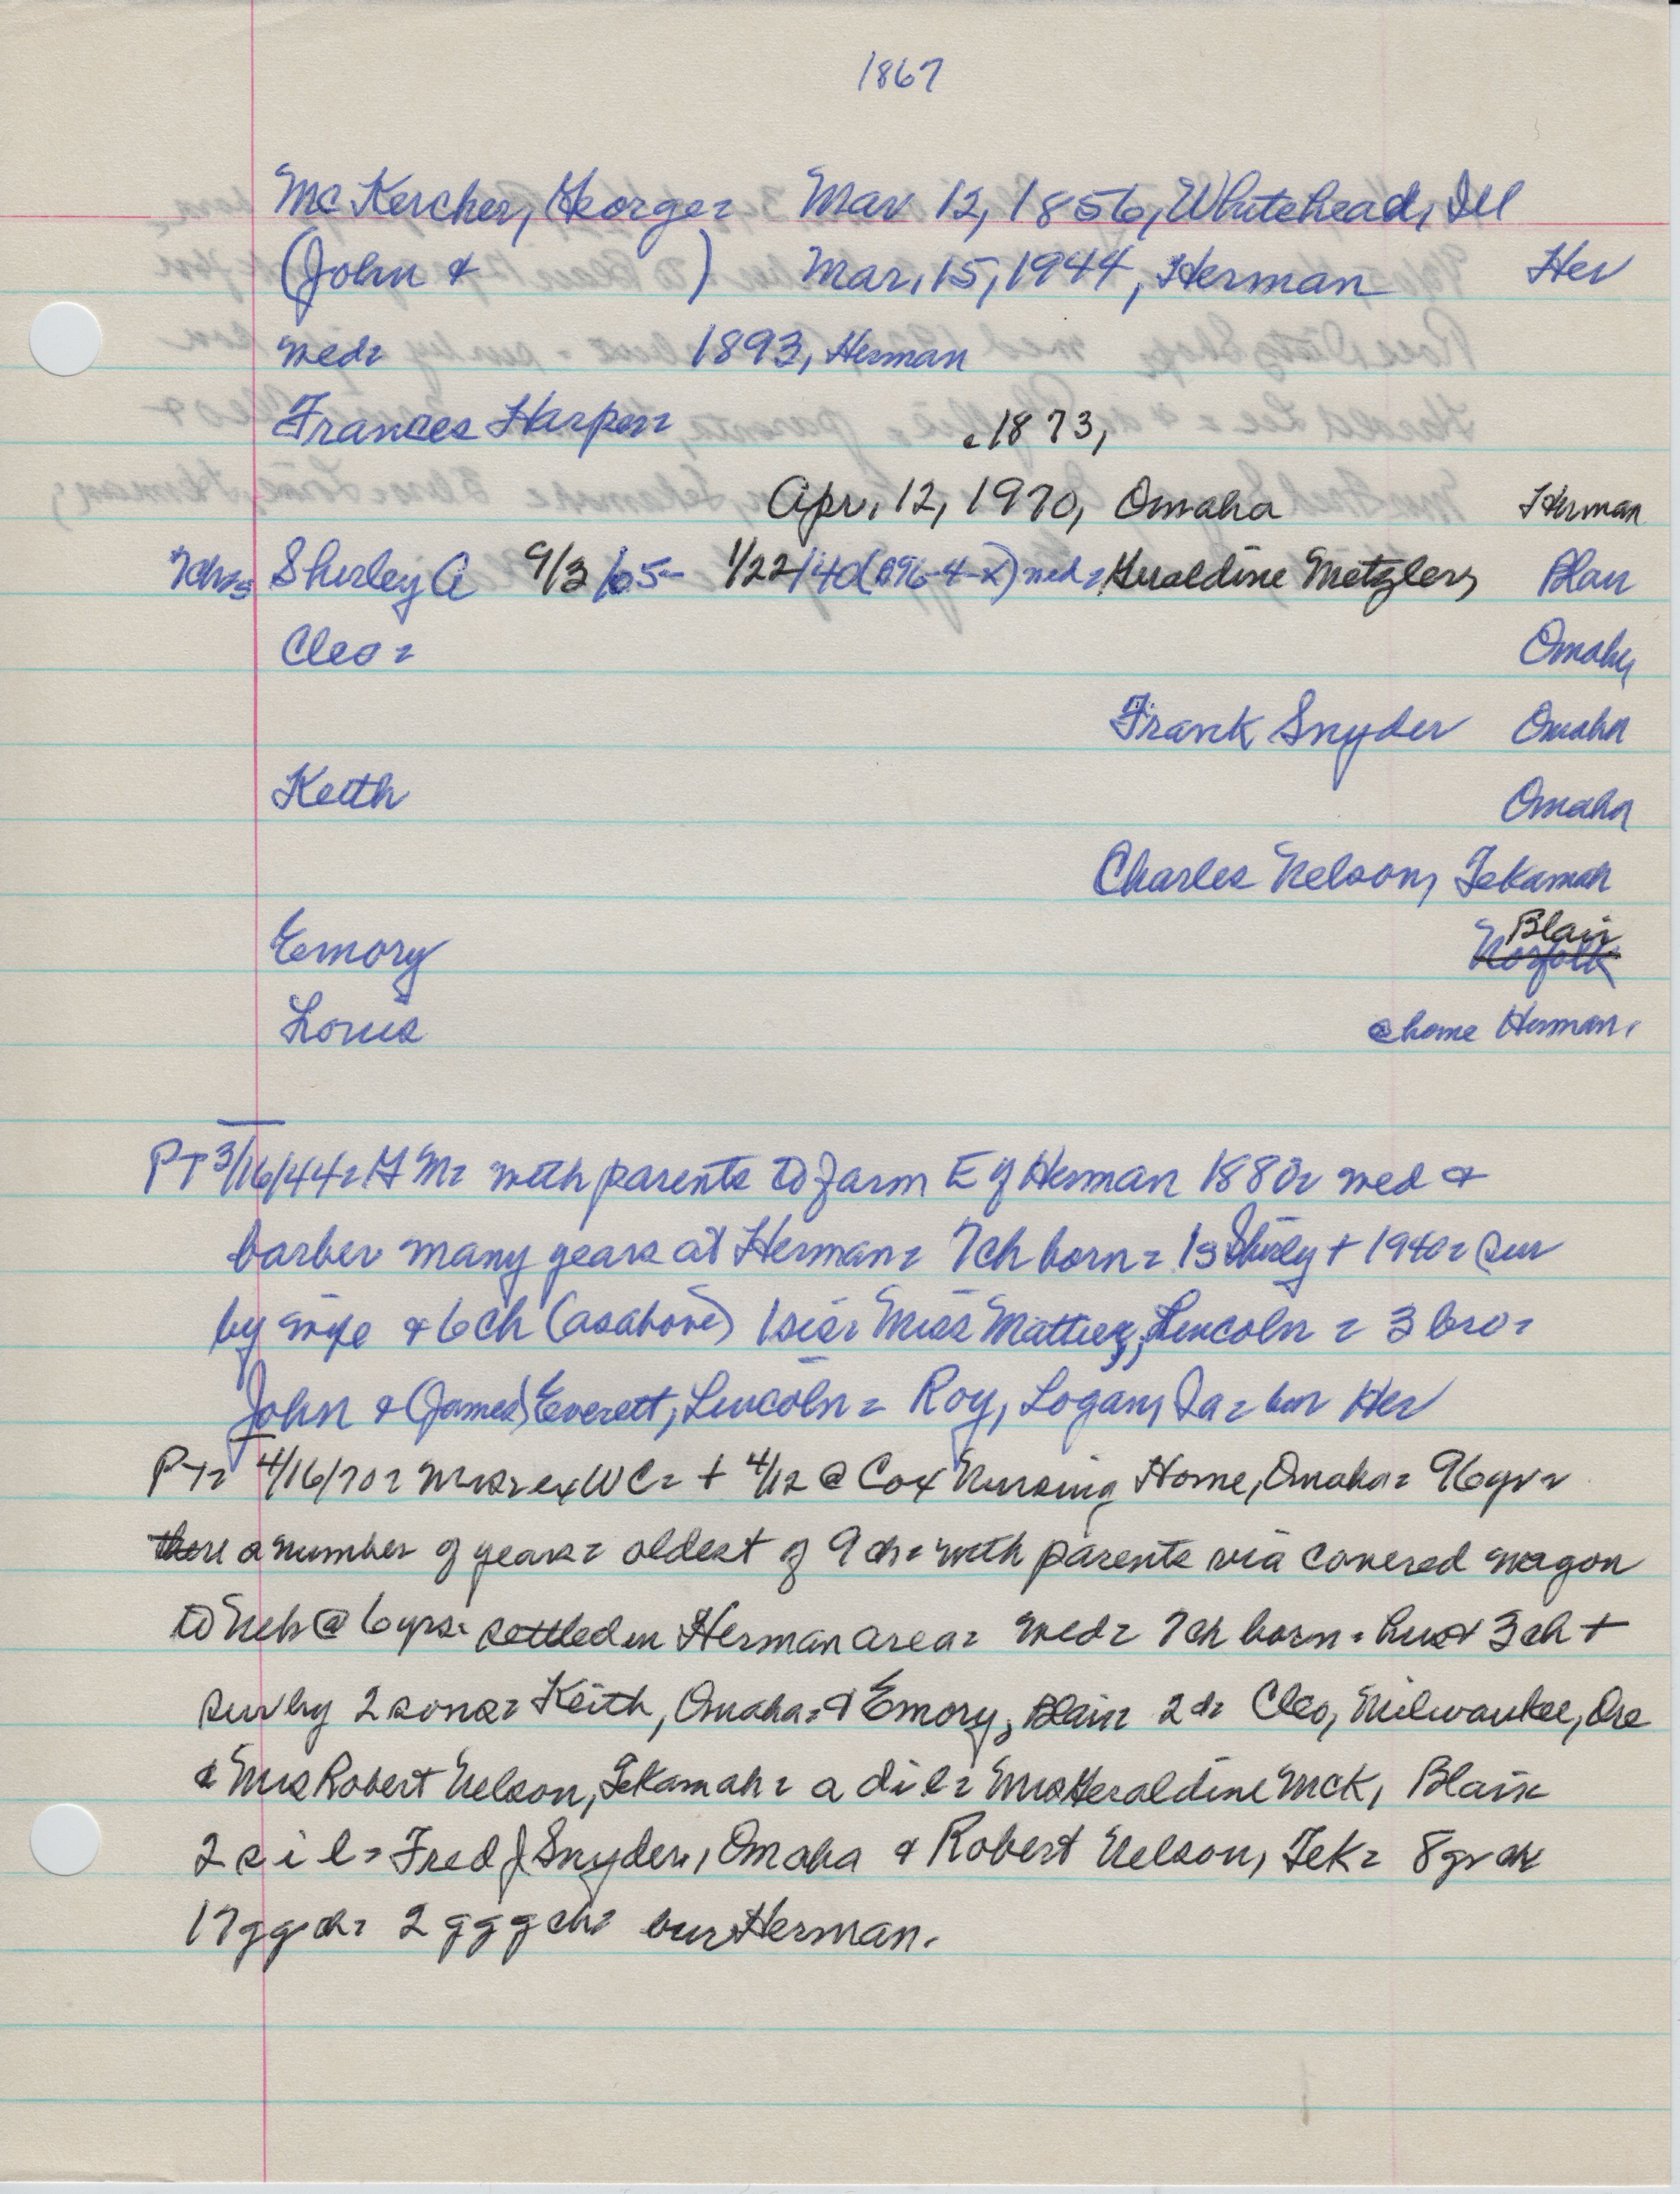 1867
McKercher, George= Mar 12, 1856, Whitehead, Ill
(John & ) Mar. 15, 1944, Herman Her
med= 1893, Herman
Frances Harper= c1873,
Apr. 12, 1970, Omaha Herman
7ch= Shirley A 9/3/05- 1/22/40 (896-4-2) med= Geraldine Metzler, Blair
Cleo= Omaha
Frank Snyder Omaha
Keith Omaha
Charles Nelson, Tekamah
Emory Norfolk Blair
Louis @ home Herman.
PT 3/16/44= GM= with parents to farm E of Herman 1880= med &
barber many years at Herman= 7ch born= 1s Shirly + 1940= sur
by wife & 6ch (as above) 1sis= Miss Mattie, Lincoln= 3 bro=
John & (James) Everett, Lincoln= Roy, Logan, Ia= bur Her
PT= 4/16/70= Mrs= ex WC= + 4/12 @ Cox Nursing Home, Omaha= 96yr=
there a number of years= oldest of 9 ch= with parents via covered wagon
to Neb @ 6yrs= settled in Herman area= med= 7ch born= hus & 3ch +
surby 2 sons= Keith, Omaha= & Emory, Blair= 2d= Cleo, Milwaukee, Ore
& Mrs Robert Nelson, Tekamah= a dil= Mrs Geraldine McK, Blair
2 s i l= Fred J Snyder, Omaha & Robert Nelson, Tek= 8gr ch
17 ggch= 2 gggch= bur Herman.